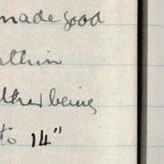 made good
within
other being
to 14"